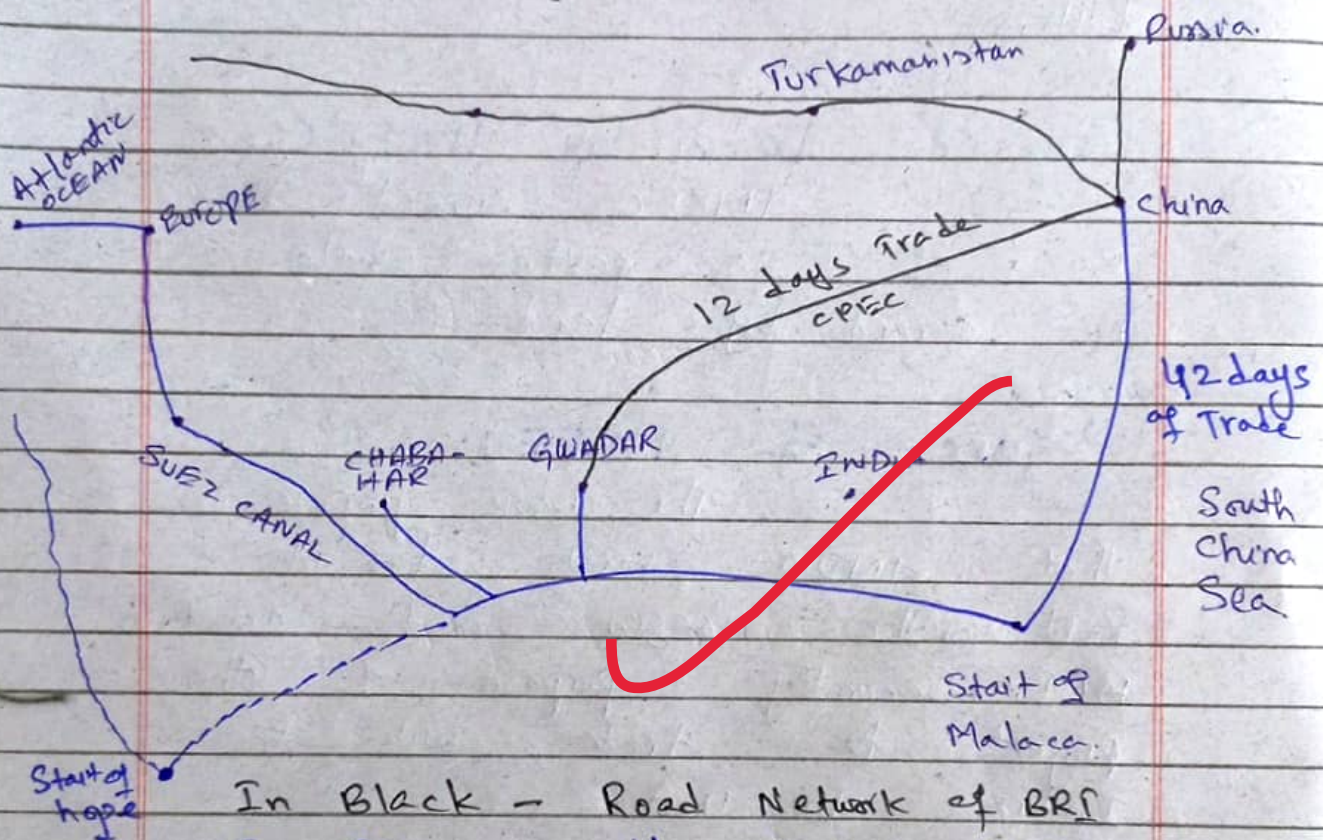 Russia.
Turkamanistan
Atlantic
OCEAN
EUROPE
China
12 days Trade
CPEC
42 days
of Trade
GWADAR
CHABA-
HAR
SUEZ CANAL
South
China
Sea
Start of
Malaca.
Start of
hope
In Black - Road Network of BRI